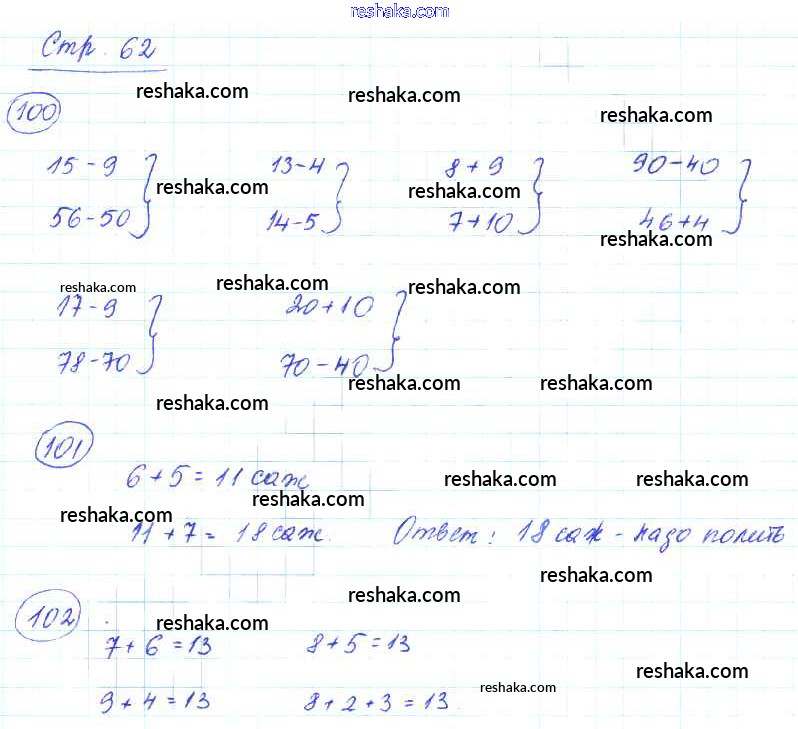 reshaka.com
Стр. 62
reshaka.com reshaka.com
100 reshaka.com
15-9 13-4 8+9 90-40
reshaka.com reshaka.com
56-50 14-5 7+10 46+4
reshaka.com
reshaka.com reshaka.com reshaka.com
17-9 20+10
78-70 70-40
reshaka.com reshaka.com
reshaka.com
101
6+5=11 саж
reshaka.com reshaka.com
reshaka.com
reshaka.com
11+7= 18 саж. Ответ: 18 саж - надо полить
reshaka.com
reshaka.com
102 reshaka.com
7+6=13 8+5=13
reshaka.com
reshaka.com
9+4=13 8+2+3=13.